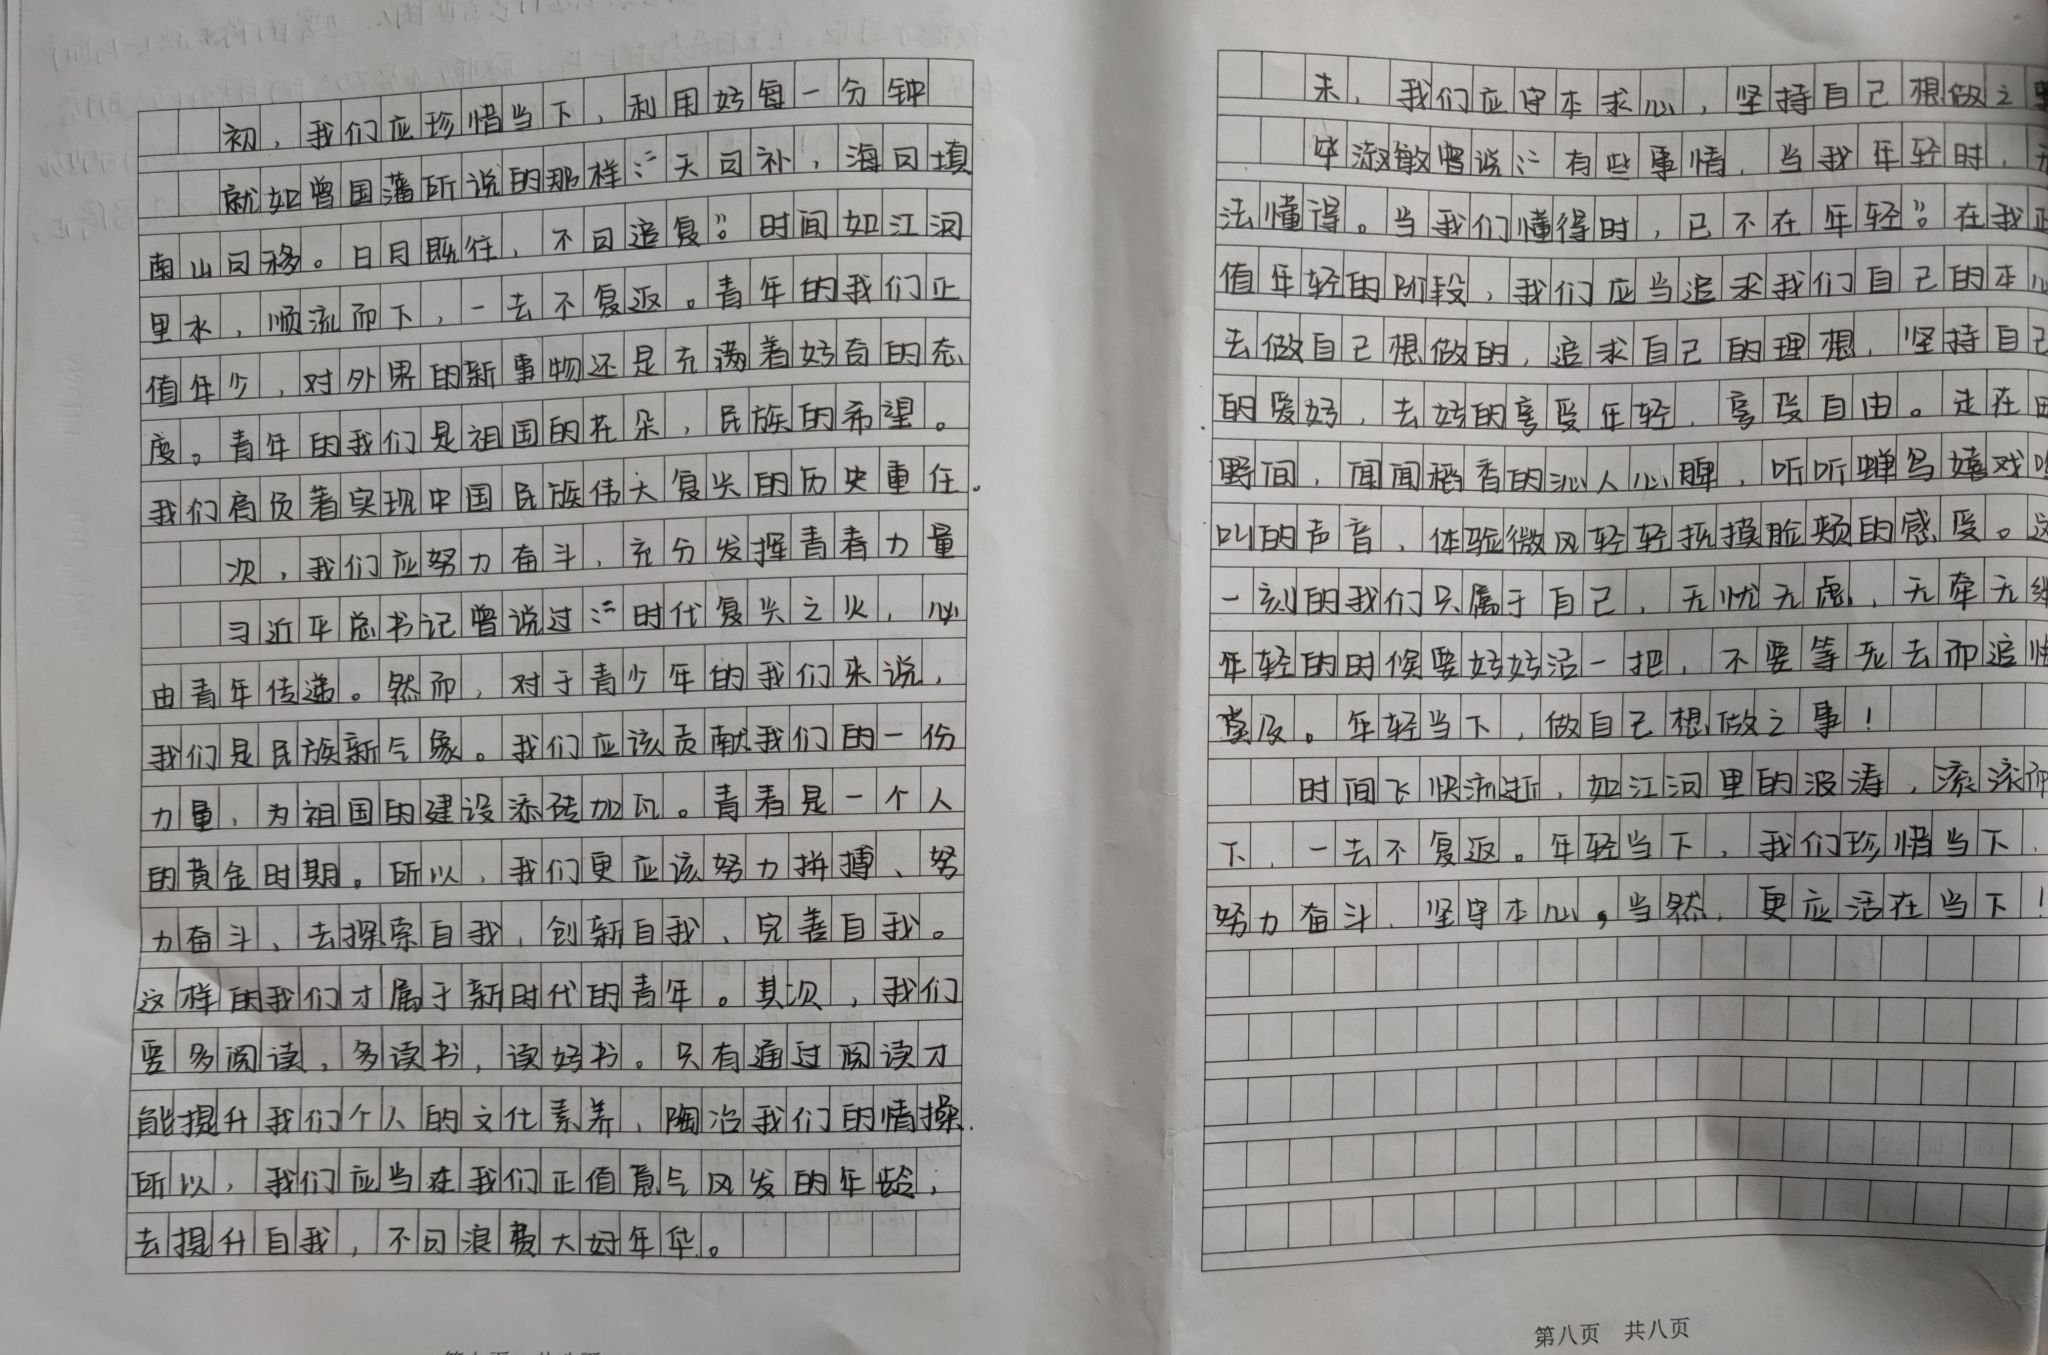 初，我们应珍惜当下，利用好每一分钟
就如曾国藩所说的那样：“天可补，海可填
南山可移。日月既往，不可追复”。时间如江河
里水，顺流而下，一去不复返。青年的我们正
值年少，对外界的新事物还是充满着好奇的态
度。青年的我们是祖国的花朵，民族的希望。
我们肩负着实现中国民族伟大复兴的历史重任。
次，我们应努力奋斗，充分发挥青春力量
习近平总书记曾说过：“时代复兴之火，必
由青年传递。然而，对于青少年的我们来说，
我们是民族新气象。我们应该贡献我们的一份
力量，为祖国的建设添砖加瓦。青春是一个人
的黄金时期。所以，我们更应该努力拼搏、努
力奋斗、去探索自我，创新自我、完善自我。
这样的我们才属于新时代的青年。其次，我们
要多阅读，多读书，读好书。只有通过阅读才
能提升我们个人的文化素养，陶冶我们的情操.
所以，我们应当在我们正值意气风发的年龄，
去提升自我，不可浪费大好年华。
末，我们应守本求心，坚持自己想做之事
毕淑敏曾说：“有些事情，当我年轻时，无
法懂得。当我们懂得时，已不在年轻”。在我正
值年轻的阶段，我们应当追求我们自己的本心
去做自己想做的，追求自己的理想，坚持自己
的爱好，去好的享受年轻，享受自由。走在田
野间，闻闻稻香的沁人心脾，听听蝉鸟嬉戏
叫的声音，体验微风轻轻抚摸脸颊的感受。这
一刻的我们只属于自己，无忧无虑，无牵无
年轻的时候要好好活一把，不要等死去而追悔
莫及。年轻当下，做自己想做之事！
时间飞快流逝，如江河里的波涛，滚滚而
下，一去不复返。年轻当下，我们珍惜当下，
努力奋斗、坚守本心，当然，更应活在当下！
第八页 共八页